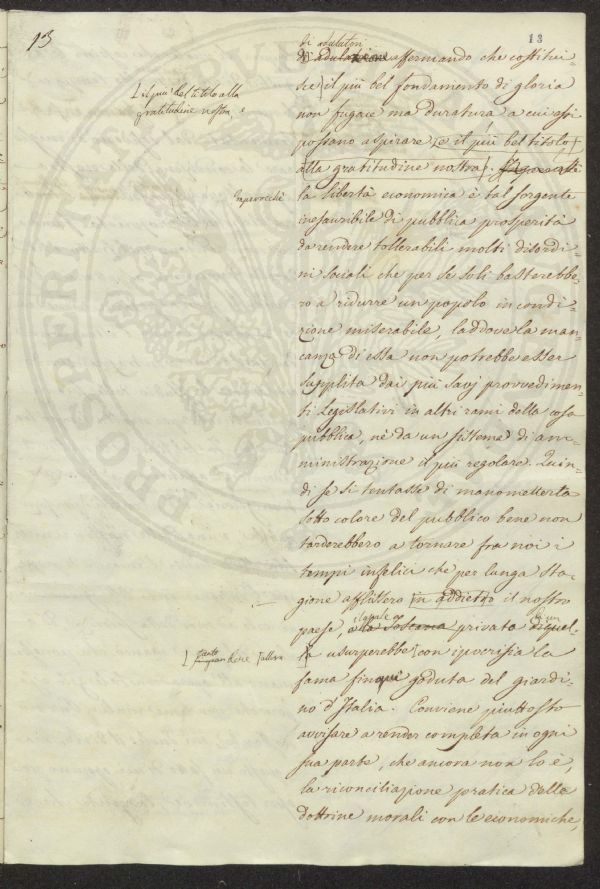 13
13
di adulatori
di adulazione affermando che costitui-
re il più bel fondamento di gloria
non fugace ma duratura, a cui essi
possano aspirare, e il più bel titolo
alla gratitudine nostra.
la libertà economica è tal sorgente
inesauribile di pubblica prosperità
da rendere tollerabili molti disordi-
ni sociali che per se soli basterebbe-
ro a ridurre un popolo in condi-
zione miserabile, laddove la man-
canza di essa non potrebbe esser
supplita dai più savj provvedimen-
ti Legislativi in altri rami della cosa
pubblica, nè da un sistema di am-
ministrazione il più regolare. Quin-
di se si tentasse di manometterla
sotto colore del pubblico bene non
tarderebbero a tornare fra noi i
tempi infelici che per lunga sta-
gione afflissero in addietro il nostro
la quale
di un
paese, a la Toscana privata
usurperebbe con ipocrisia la
fama fin qui goduta del giardi-
no d'Italia. Conviene piuttosto
avvisare a render completa in ogni
sua parte, che ancora non lo è,
la riconciliazione pratica delle
dottrine morali con le economiche,
il più bel titolo alla
gratitudine nostra e
Imperocchè
tanto
allora
PROSPERI